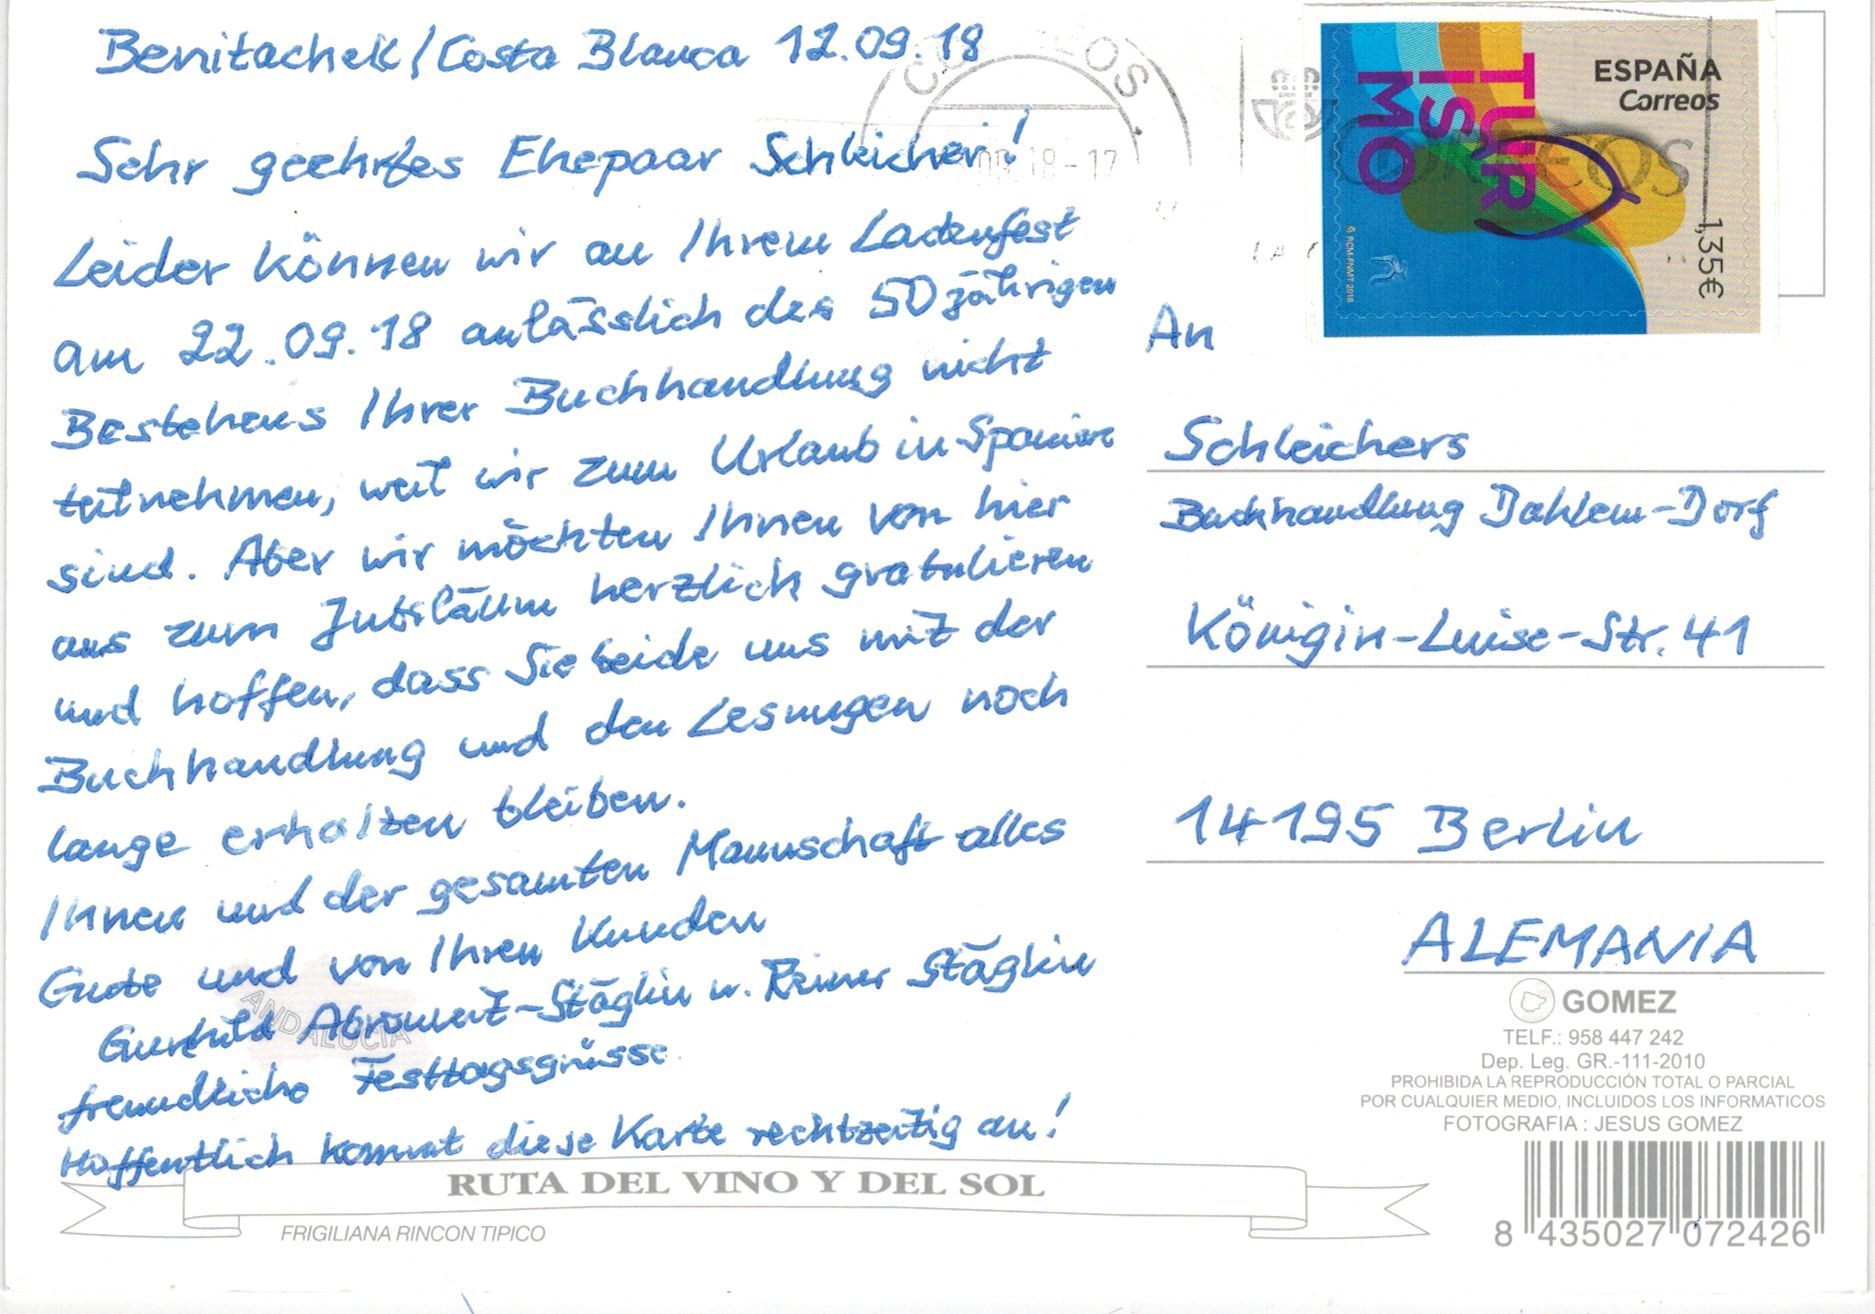 Benitachek/Costa Blanca 12.09.18
Sehr geehrtes Ehepaar Schleicher!
Leider können wir an Ihrem Ladenfest
am 22.09.18 anlässlich des 50jährigen
Bestehens Ihrer Buchhandlung nicht
teilnehmen, weil wir zum Urlaub in Spanien
sind. Aber wir möchten Ihnen von hier
aus zum Jubiläum herzlich gratulieren
und hoffen, dass Sie beide uns mit der
Buchhandlung und den Lesungen noch
lange erhalten bleiben.
Ihnen und der gesamten Mannschaft alles
Gute und von Ihren Kunden
Abromeit-Stäglin u. Reiner Stäglin
freundliche Festtagsgrüsse
Hoffentlich kommt diese Karte rechtzeitig an!
ANDALUCIA
RUTA DEL VINO Y DEL SOL
FRIGILIANA RINCON TIPICO
18-17
CORREOS
ESPAÑA
Correos
TURISMO
1,35€
© RCM-FNMT 2018
An
Schleichers
Buchhandlung Dahlem-Dorf
Königin-Luise-Str. 41
14195 Berlin
ALEMANIA
GOMEZ
TELF.: 958 447 242
Dep. Leg. GR.-111-2010
PROHIBIDA LA REPRODUCCIÓN TOTAL O PARCIAL
POR CUALQUIER MEDIO, INCLUIDOS LOS INFORMATICOS
FOTOGRAFIA : JESUS GOMEZ
8 435027 072426